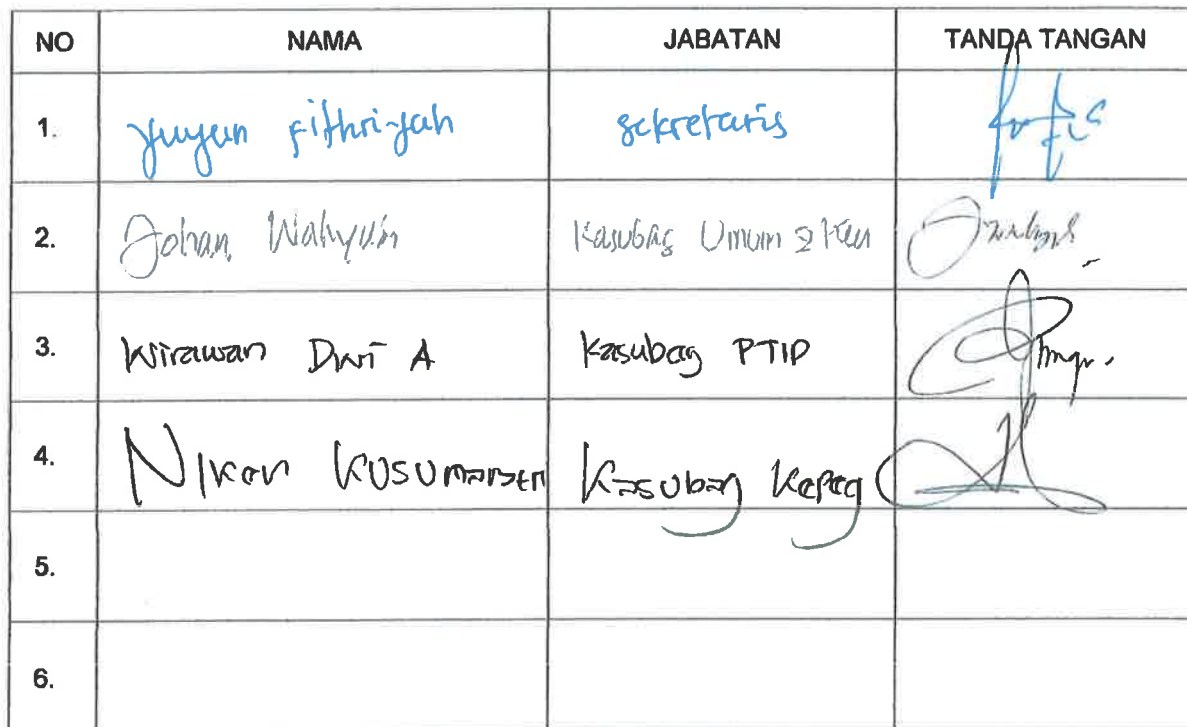 NO NAMA JABATAN TANDA TANGAN
1. Yuyun Fithriyah sekretaris
2. Johan Wahyudi Kasubag Umum & Keu
3. Wirawan Dwi A Kasubag PTIP
4. Niken Kusumarsen Kasubag Kepeg
5.
6.